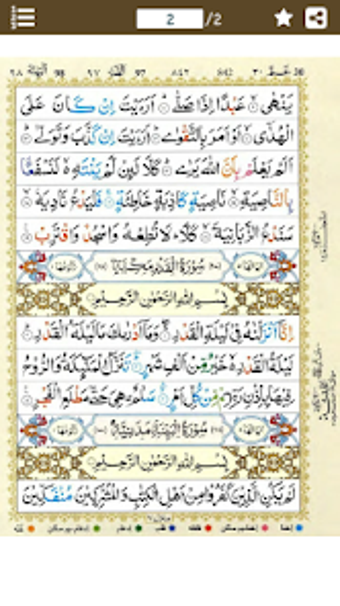 2 /2
يَنْهٰىۙ عَبْدًا اِذَا صَلّٰىؕ اَرَءَيْتَ اِنْ كَانَ عَلَى
الْهُدٰٓىۙ اَوْ اَمَرَ بِالتَّقْوٰىؕ اَرَءَيْتَ اِنْ كَذَّبَ وَتَوَلّٰىؕ
اَلَمْ يَعْلَمْ بِاَنَّ اللّٰهَ يَرٰىؕ كَلَّا لَئِنْ لَّمْ يَنْتَهِ ۙ لَنَسْفَعًۢا
بِالنَّاصِيَةِۙ نَاصِيَةٍ كَاذِبَةٍ خَاطِئَةٍۚ فَلْيَدْعُ نَادِيَهٗۙ
سَنَدْعُ الزَّبَانِيَةَۙ كَلَّاؕ لَا تُطِعْهُ وَاسْجُدْ وَاقْتَرِبْ
سُوْرَةُ الْقَدْرِ مَكِّيَّةٌ
بِسْمِ اللّٰهِ الرَّحْمٰنِ الرَّحِيْمِ
اِنَّآ اَنْزَلْنٰهُ فِيْ لَيْلَةِ الْقَدْرِۚ وَمَآ اَدْرٰىكَ مَا لَيْلَةُ الْقَدْرِؕ
لَيْلَةُ الْقَدْرِ ۙ خَيْرٌ مِّنْ اَلْفِ شَهْرٍؕ تَنَزَّلُ الْمَلٰٓئِكَةُ وَالرُّوْحُ
فِيْهَا بِاِذْنِ رَبِّهِمْۚ مِّنْ كُلِّ اَمْرٍۙ سَلٰمٌ ۛ هِيَ حَتّٰى مَطْلَعِ الْفَجْرِ
سُوْرَةُ الْبَيِّنَةِ مَدَنِيَّةٌ
بِسْمِ اللّٰهِ الرَّحْمٰنِ الرَّحِيْمِ
لَمْ يَكُنِ الَّذِيْنَ كَفَرُوْا مِنْ اَهْلِ الْكِتٰبِ وَالْمُشْرِكِيْنَ مُنْفَكِّيْنَ